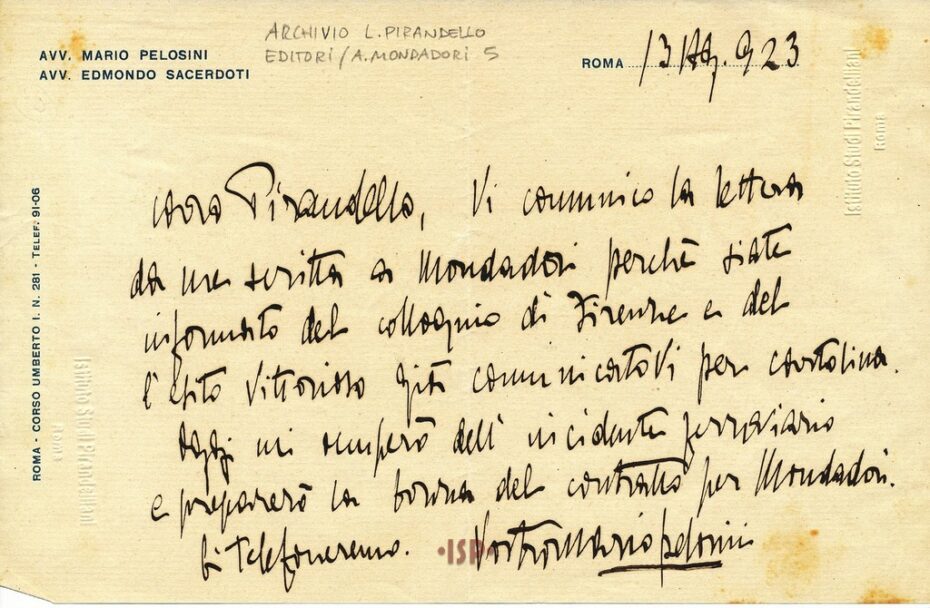 AVV. MARIO PELOSINI
AVV. EDMONDO SACERDOTI
ARCHIVIO L. PIRANDELLO
EDITORI/A. MONDADORI 5
ROMA 13 Ag. 923
Istituto Studi Pirandelliani
ROMA
caro Pirandello, Vi comunico la lettera
da me scritta a Mondadori perchè siate
informato del colloquio di Firenze e del
l'esito vittorioso già comunicatovi per cartolina.
Oggi mi occuperò dell'incidente ferroviario
e preparerò la bozza del contratto per Mondadori.
Ci telefoneremo. Vostro Mario Pelosini
ROMA - CORSO UMBERTO I. N. 281 - TELEF. 91-06
Istituto Studi Pirandelliani
Roma
·ISP·